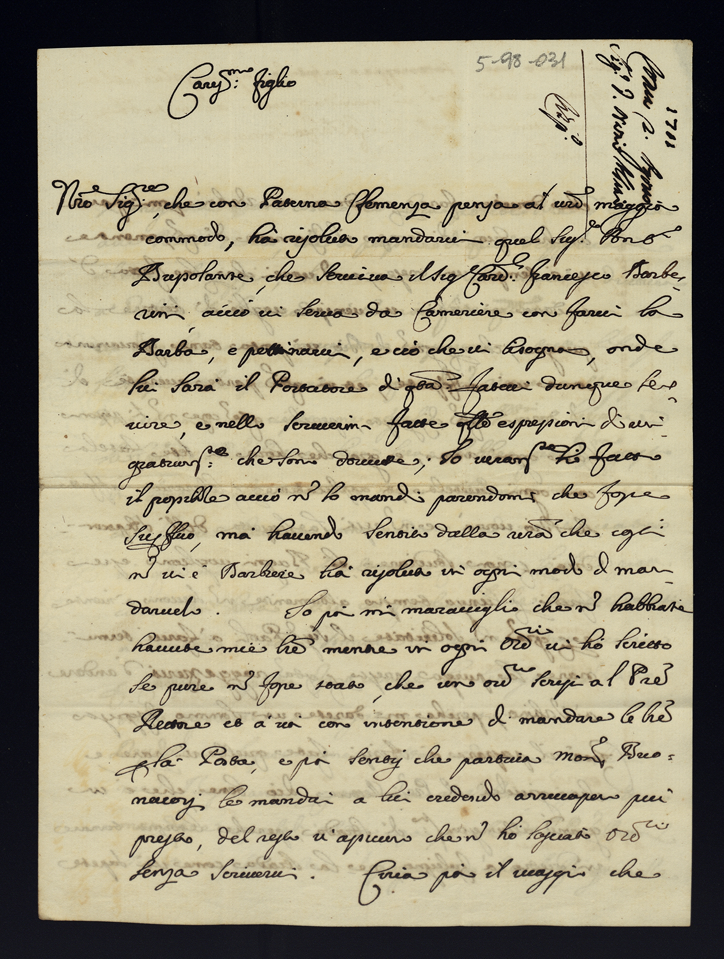 5-98-031
1711
Cariss.mo figlio
Nro Sig.re, che con Paterna Clemenza pensa al vro maggior
commodo, hà risoluto mandarvi quel Sig.
che serviva il Sig. Card. Francesco Barbe-
rini, acciò vi serva da Cameriere con farvi la
Barba, e pettinarvi, e ciò che vi bisogna, onde
lui sarà il Portatore di qta. Fatevi dunque ser-
vire, e nello scriverli fatte qlle espressioni di
che son dovute; Io hò fatto
il possibile acciò nō lo mandi parendomi che fosse
superfluo, mà havendo sentito dalla vrā che costì
nō vi è Barbiere hà risoluto in ogni modo di man-
darvelo. Io poi mi maraviglio che nō habbiate
havute mie lrē mentre in ogni ord.rio vi hò scritto
se pure nō fosse stato, che un ord.rio scrissi al Prē
Rettore et à voi con intentione di mandare le lrē
p la Posta, e poi sentij che partiva Mon. Buo-
nacorsi le mandai a lui credendo arrivasser più
presto, del resto v'assicuro che nō hò lasciato ord.rio
senza scrivervi. Circa poi il viaggio che